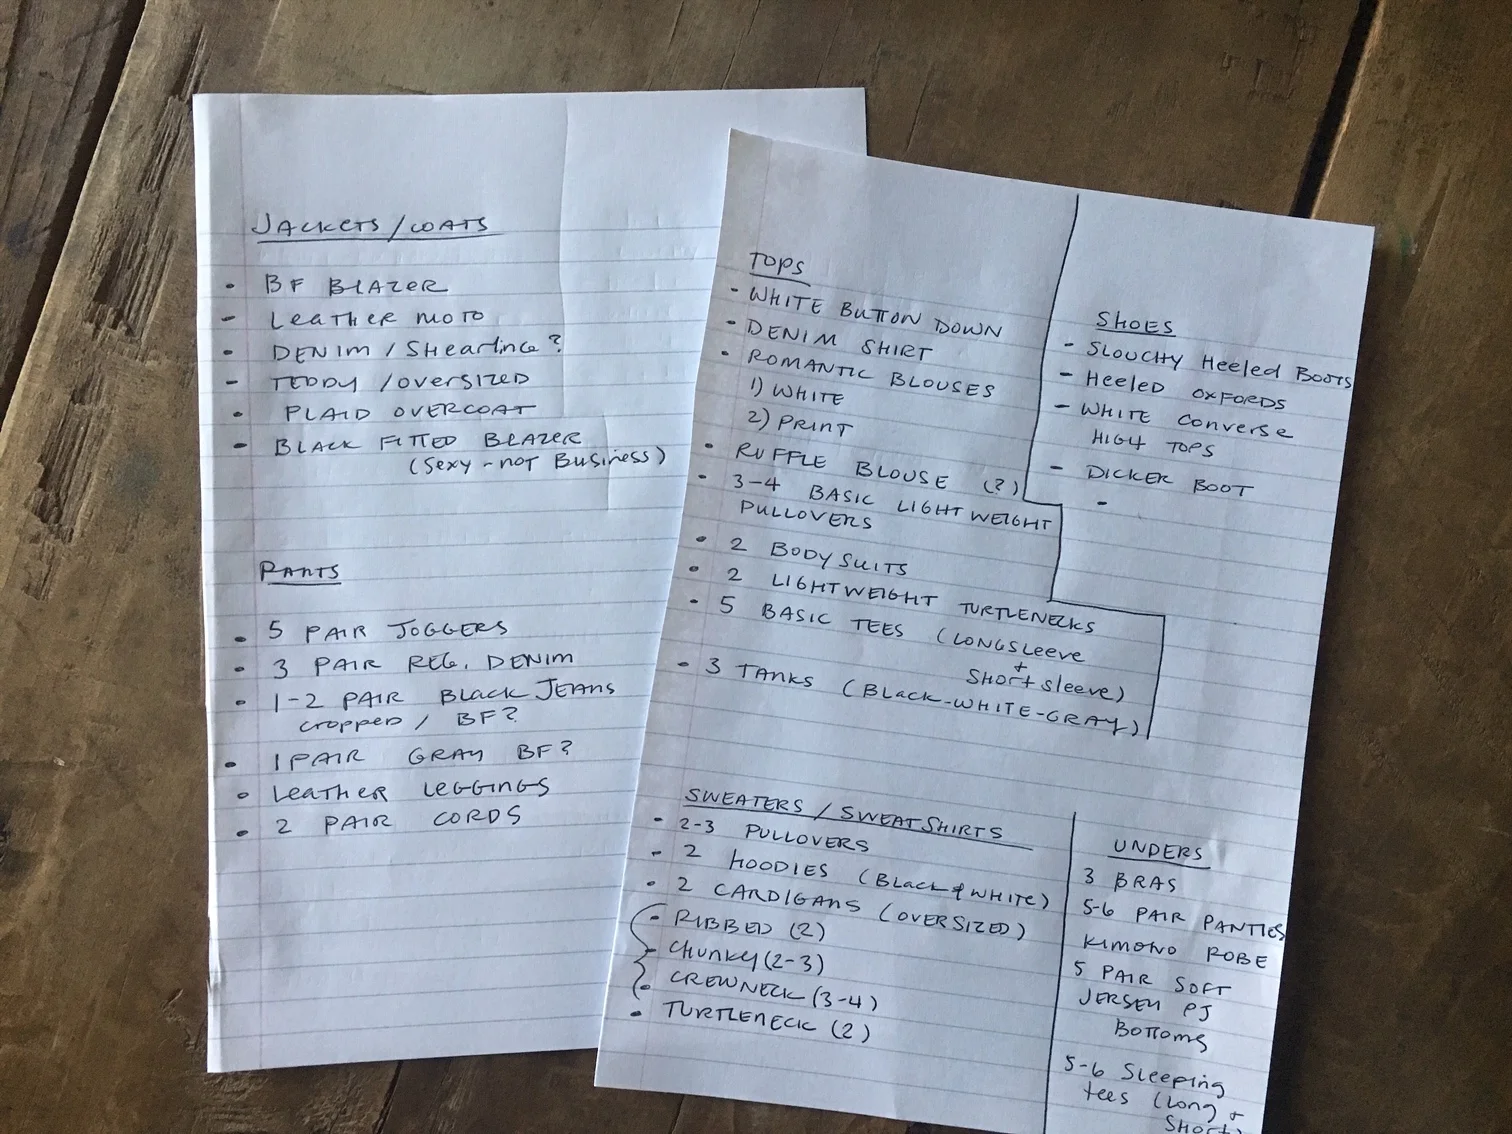 JACKETS/COATS
• BF BLAZER
- LEATHER MOTO
- DENIM / SHEARLING?
- TEDDY / OVERSIZED
• PLAID OVERCOAT
- BLACK FITTED BLAZER
(SEXY - NOT BUSINESS)
PANTS
• 5 PAIR JOGGERS
• 3 PAIR REG. DENIM
• 1-2 PAIR BLACK JEANS
CROPPED / BF?
• 1 PAIR GRAY BF?
• LEATHER LEGGINGS
• 2 PAIR CORDS
TOPS
- WHITE BUTTON DOWN
- DENIM SHIRT
• ROMANTIC BLOUSES
1) WHITE
2) PRINT
• RUFFLE BLOUSE (?)
• 3-4 BASIC LIGHTWEIGHT
PULLOVERS
• 2 BODYSUITS
• 2 LIGHTWEIGHT TURTLENECKS
• 5 BASIC TEES (LONGSLEEVE
+
SHORT SLEEVE)
• 3 TANKS (BLACK-WHITE-GRAY)
SHOES
- SLOUCHY HEELED BOOTS
- HEELED OXFORDS
- WHITE CONVERSE
HIGH TOPS
- DICKER BOOT
-
SWEATERS / SWEATSHIRTS
• 2-3 PULLOVERS
- 2 HOODIES (BLACK & WHITE)
• 2 CARDIGANS (OVERSIZED)
• RIBBED (2)
- CHUNKY (2-3)
• CREWNECK (3-4)
• TURTLENECK (2)
UNDERS
3 BRAS
5-6 PAIR PANTIES
KIMONO ROBE
5 PAIR SOFT
JERSEY PJ
BOTTOMS
5-6 SLEEPING
TEES (LONG +
SHORT)